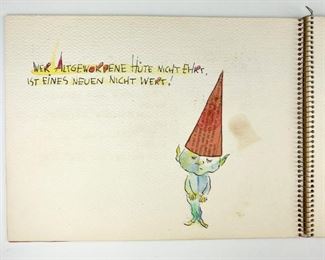 WER ALTGEWORDENE HÜTE NICHT EHRT,
IST EINES NEUEN NICHT WERT!